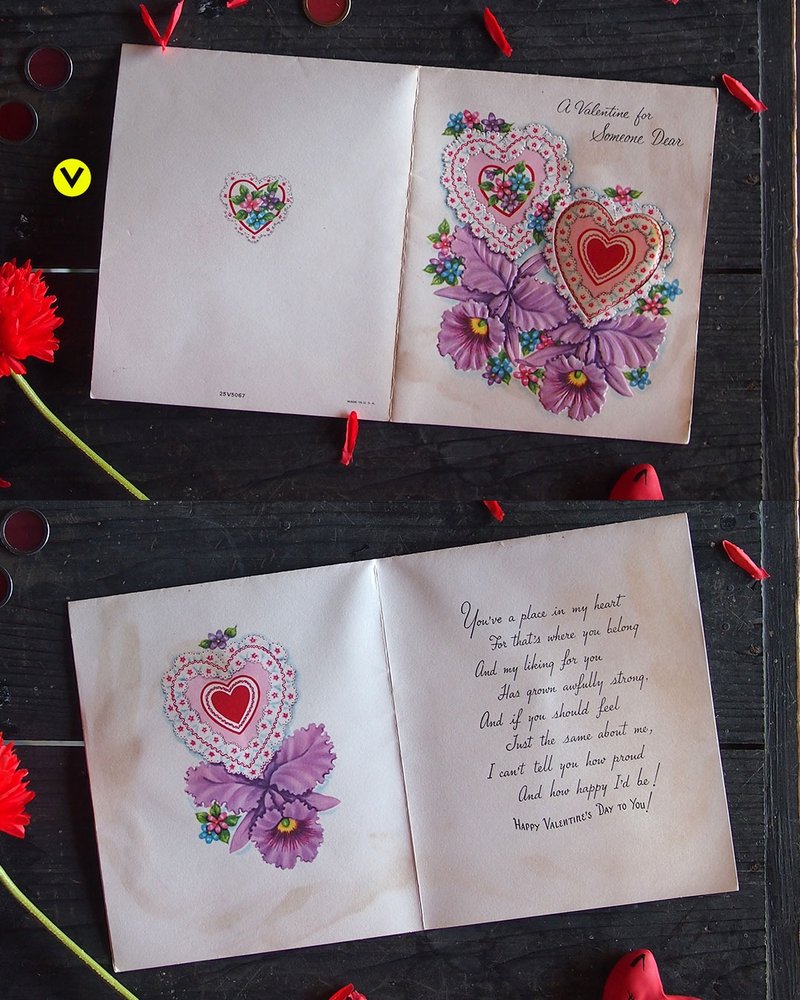 A Valentine for
Someone Dear
25V5067
MADE IN U.S.A.
You've a place in my heart
For that's where you belong
And my liking for you
Has grown awfully strong,
And if you should feel
Just the same about me,
I can't tell you how proud
And how happy I'd be!
Happy Valentine's Day to You!